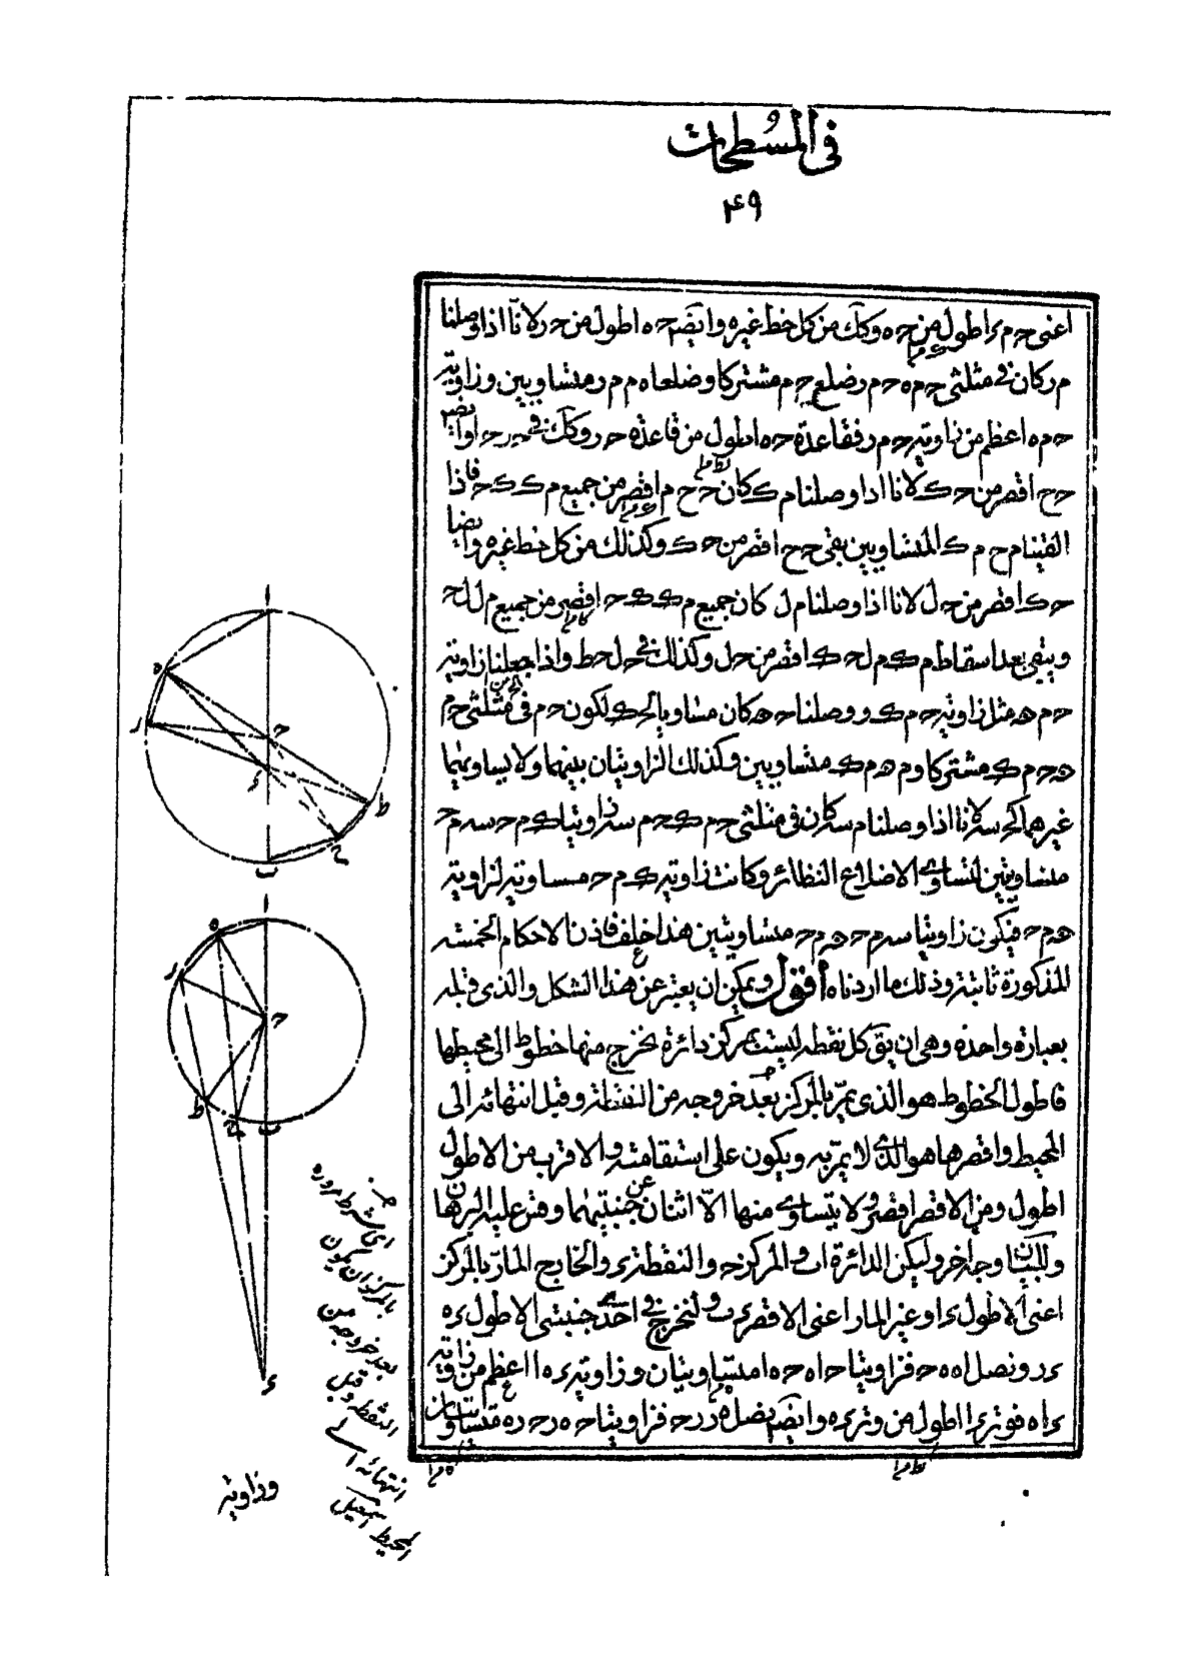 في المسطحات
۴۹
اعنى حـ م ء اطول من حـ ه وكك من كل خط غيره وايضا حـ ه اطول من حـ ر لانا اذا وصلنا
م ر كان فى مثلثى حـ م ه حـ م ر ضلع حـ م مشتركا وضلعا ه م م ر متساويين وزاوية
حـ م ه اعظم من زاوية حـ م ر فقاعدة حـ ه اطول من قاعدة حـ ر وكك فى حـ ر حـ ا وايضا
حـ ح اقصر من حـ ك لانا اذا وصلنا م ك كان حـ ح م اقصر من جميع م ك ك حـ فاذا
القينا م ح م ك المتساويين بقى حـ ح اقصر من حـ ك وكذلك من كل خط غيره وايضا
حـ ك اقصر من حـ ل لانا اذا وصلنا م ل كان جميع م ك ك حـ اقصر من جميع م ل ل حـ
ويبقى بعد اسقاط م ك م ل حـ ك اقصر من حـ ل وكذلك فى حـ ل حـ ط واذا جعلنا زاوية
حـ م هـ مثل زاوية حـ م ك ووصلنا حـ هـ كان مساويا لحـ ك لكون حـ م فى مثلثى حـ م
هـ حـ م ك مشتركا وم هـ م ك متساويين وكذلك الزاويتان بينهما ولا يساويهما
غيرهما كحـ سـ لانا اذا وصلنا م سـ كان فى مثلثى حـ م ك حـ م سـ زاويتا ك م حـ سـ م حـ
متساويتين لتساوى الاضلاع النظائر وكانت زاوية ك م حـ مساوية لزاوية
هـ م حـ فيكون زاويتا سـ م حـ هـ م حـ متساويتين هذا خلف فاذن الاحكام الخمسة
المذكورة ثابتة وذلك ما اردناه اقول ويمكن ان يعبر عن هذا الشكل والذى قبله
بعبارة واحدة وهى ان يق كل نقطة ليست بمركز دائرة يخرج منها خطوط الى محيطها
فاطول الخطوط هو الذى يمر بالمركز بعد خروجه من النقطة وقبل انتهائه الى
المحيط واقصرها هو الذى لا يمر به ويكون على استقامته والاقرب من الاطول
اطول ومن الاقصر اقصر ولا يتساوى منها الا اثنان عن جنبتيهما وقس عليه البرهان
وللبيان وجه اخر وليكن الدائرة ا ب والمركز حـ والنقطة ء والخارج المار بالمركز
اعنى الاطول ء ا وغير المار اعنى الاقصر ء ب ولنخرج فى احدى جنبتى الاطول ء ه
ء ر ونصل ا ه ه حـ فزاويتا حـ ا ه حـ ه ا متساويتان وزاوية ء ه ا اعظم من زاوية
ء ا ه فوتر ء ا اطول من وتر ء ه وايضا نصل ه ر ر حـ فزاويتا حـ ه ر حـ ر ه متساويتان
اى بشرط مروره
بالمركز ان يكون
بعد خروجه من
النقطة وقبل
انتهائه الى
المحيط
وزاوية
ا
ه
ر
حـ
ء
ط
ح
ب
ا
ه
ر
حـ
ط
ح
ب
ء